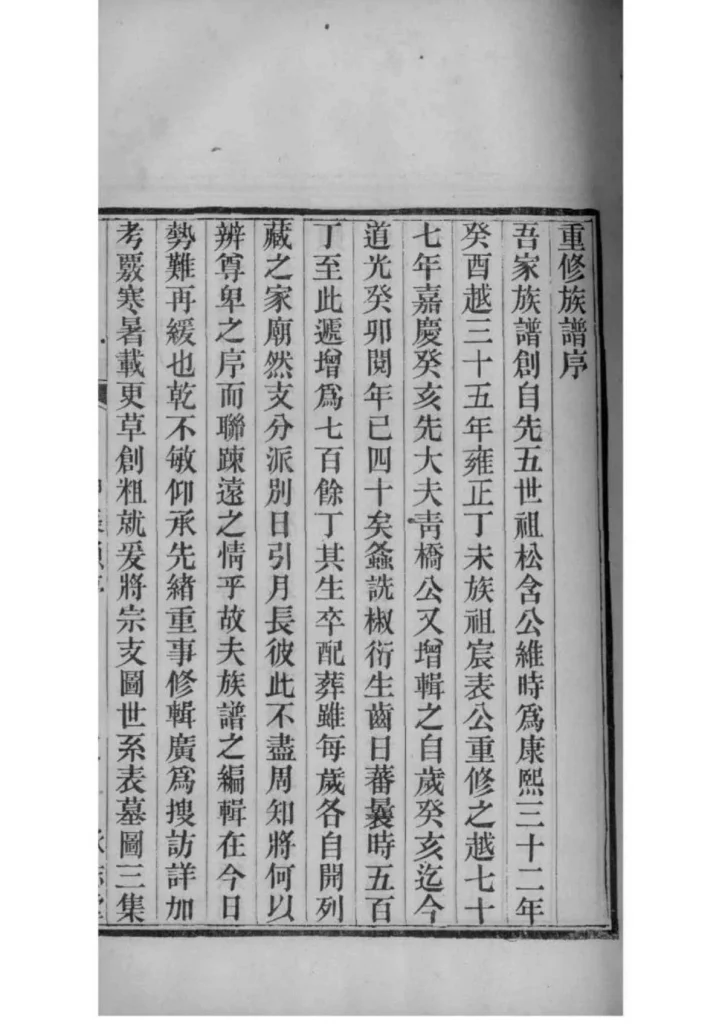 重修族譜序
吾家族譜創自先五世祖松含公維時爲康熙三十二年
癸酉越三十五年雍正丁未族祖宸表公重修之越七十
七年嘉慶癸亥先大夫靑橋公又增輯之自歲癸亥迄今
道光癸卯閱年已四十矣螽詵椒衍生齒日蕃曩時五百
丁至此遞增爲七百餘丁其生卒配葬雖每歲各自開列
藏之家廟然支分派別日引月長彼此不盡周知將何以
辨尊卑之序而聯踈遠之情乎故夫族譜之編輯在今日
勢難再緩也乾不敏仰承先緒重事修輯廣爲搜訪詳加
考覈寒暑載更草創粗就爰將宗支圖世系表墓圖三集